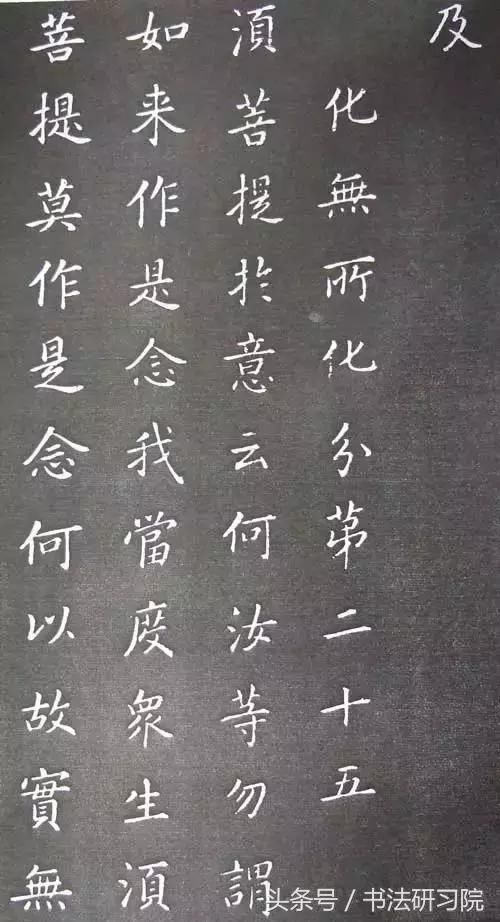 及
化無所化分第二十五
須菩提於意云何汝等勿謂
如来作是念我當度衆生須
菩提莫作是念何以故實無
头条号／书法研习院